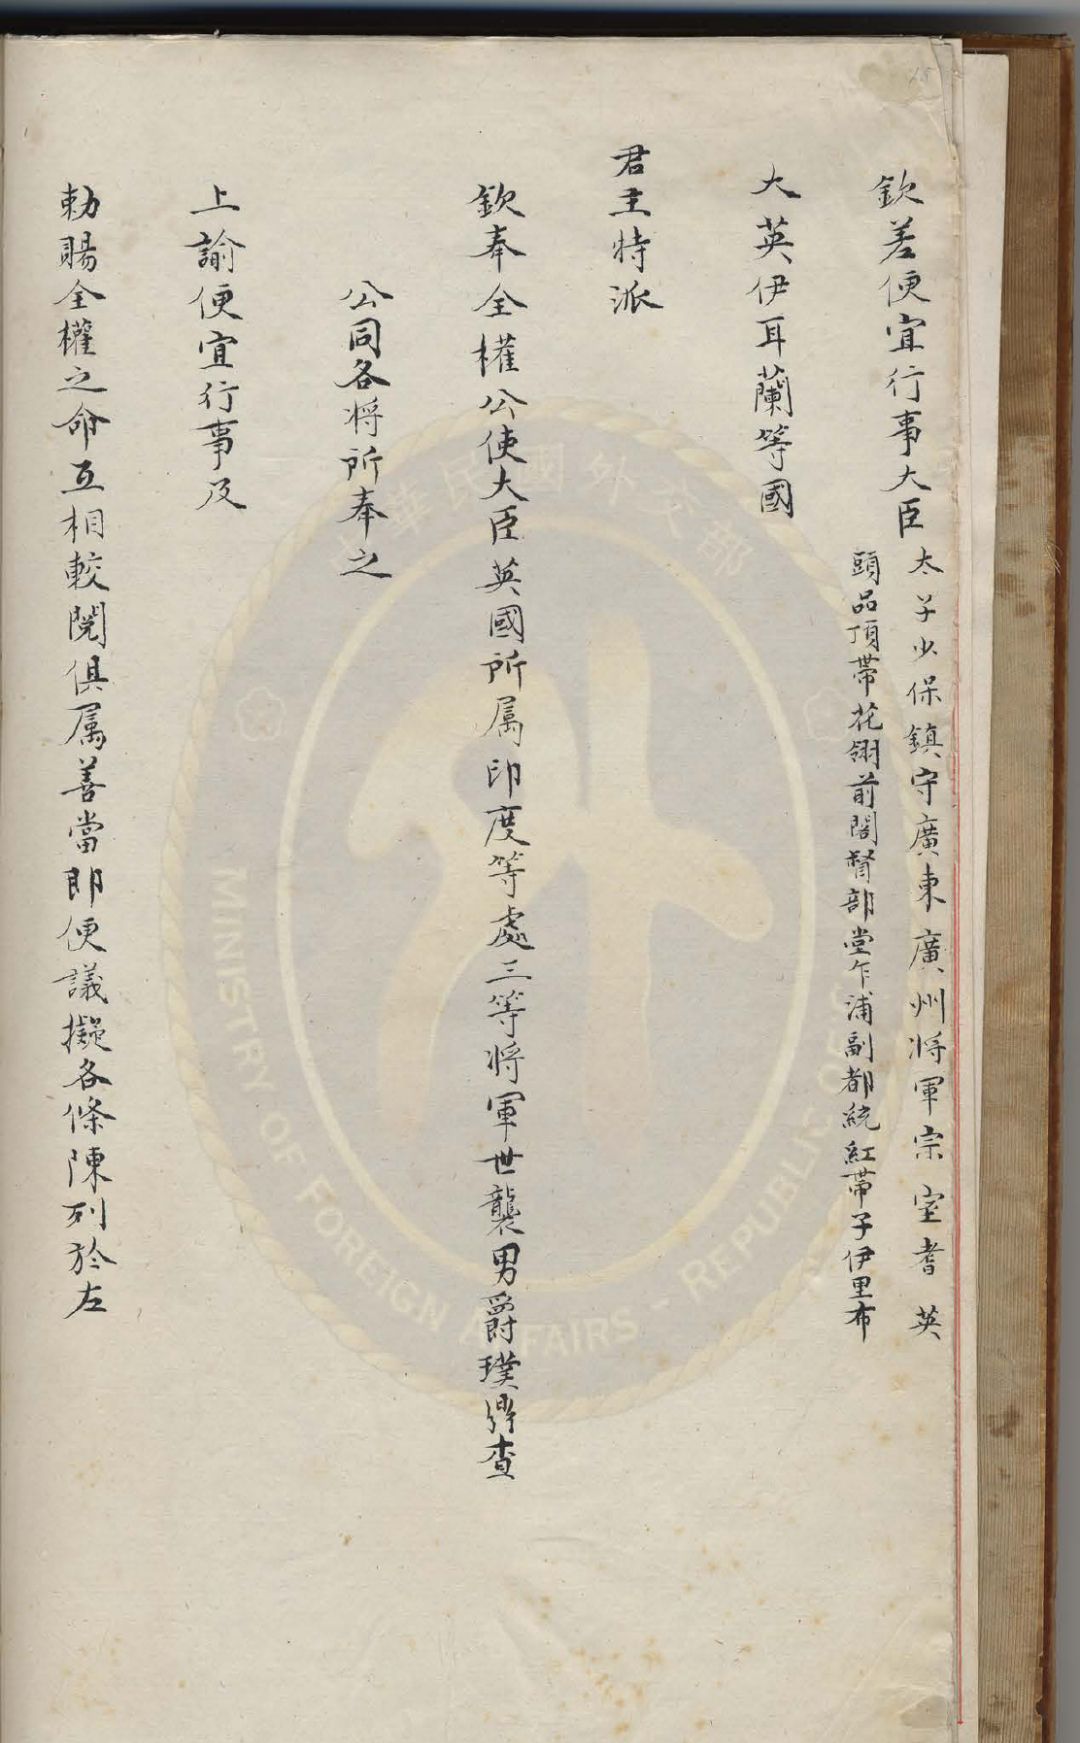 欽差便宜行事大臣
太子少保鎮守廣東廣州将軍宗室耆英
頭品頂帶花翎前閣督部堂乍浦副都統紅帶子伊里布
大英伊耳蘭等國
君主特派
欽奉全權公使大臣英國所屬印度等處三等将軍世襲男爵璞鼎查
公同各将所奉之
上諭便宜行事及
勅賜全權之命互相較閱俱屬善當即便議擬各條陳列於左
中華民國外交部
MINISTRY OF FOREIGN AFFAIRS - REPUBLIC OF